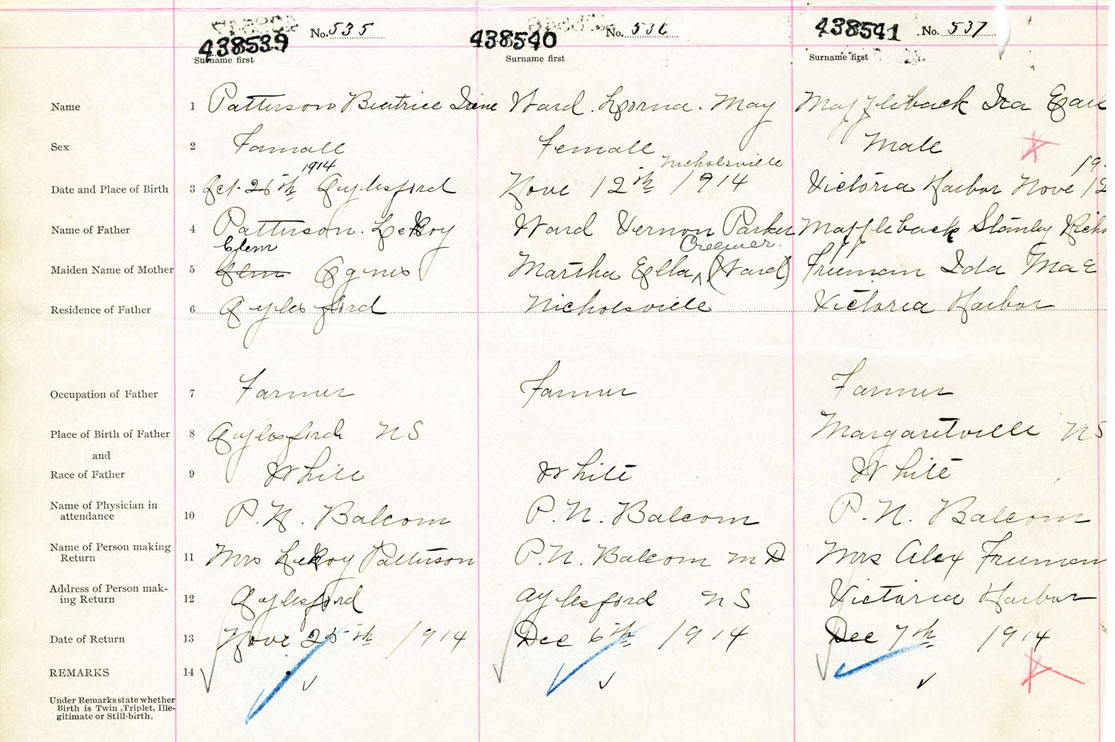 438539 No. 535 438540 No. 536 438541 No. 537
Surname first Surname first Surname first
Name 1 Patterson Beatrice Irene Ward. Lorna. May Maffleback Ira Earl
Sex 2 Famall Female Male
1914 Nicholsville 19
Date and Place of Birth 3 Oct. 26th Aylesford Nove 12th 1914 Victoria Harbor Nove 12
Name of Father 4 Patterson. LeRoy Ward Vernon Parker Maffleback Stanley
Elem Creemer.
Maiden Name of Mother 5 Elm Agnes Martha Ella (Ward) Freeman Ida Mae
Residence of Father 6 Aylesford Nicholsville Victoria Harbor
Occupation of Father 7 Farmer Farmer Farmer
Place of Birth of Father 8 Aylesford NS Margaretville NS
and
Race of Father 9 White White White
Name of Physician in
attendance 10 P. N. Balcom P. N. Balcom P. N. Balcom
Name of Person making
Return 11 Mrs LeRoy Patterson P. N. Balcom M D Mrs Alex Freeman
Address of Person mak-
ing Return 12 Aylesford Aylesford NS Victoria Harbor
Date of Return 13 Nove 25th 1914 Dec 6th 1914 Dec 7th 1914
REMARKS 14
Under Remarks state whether
Birth is Twin, Triplet, Ille-
gitimate or Still-birth.